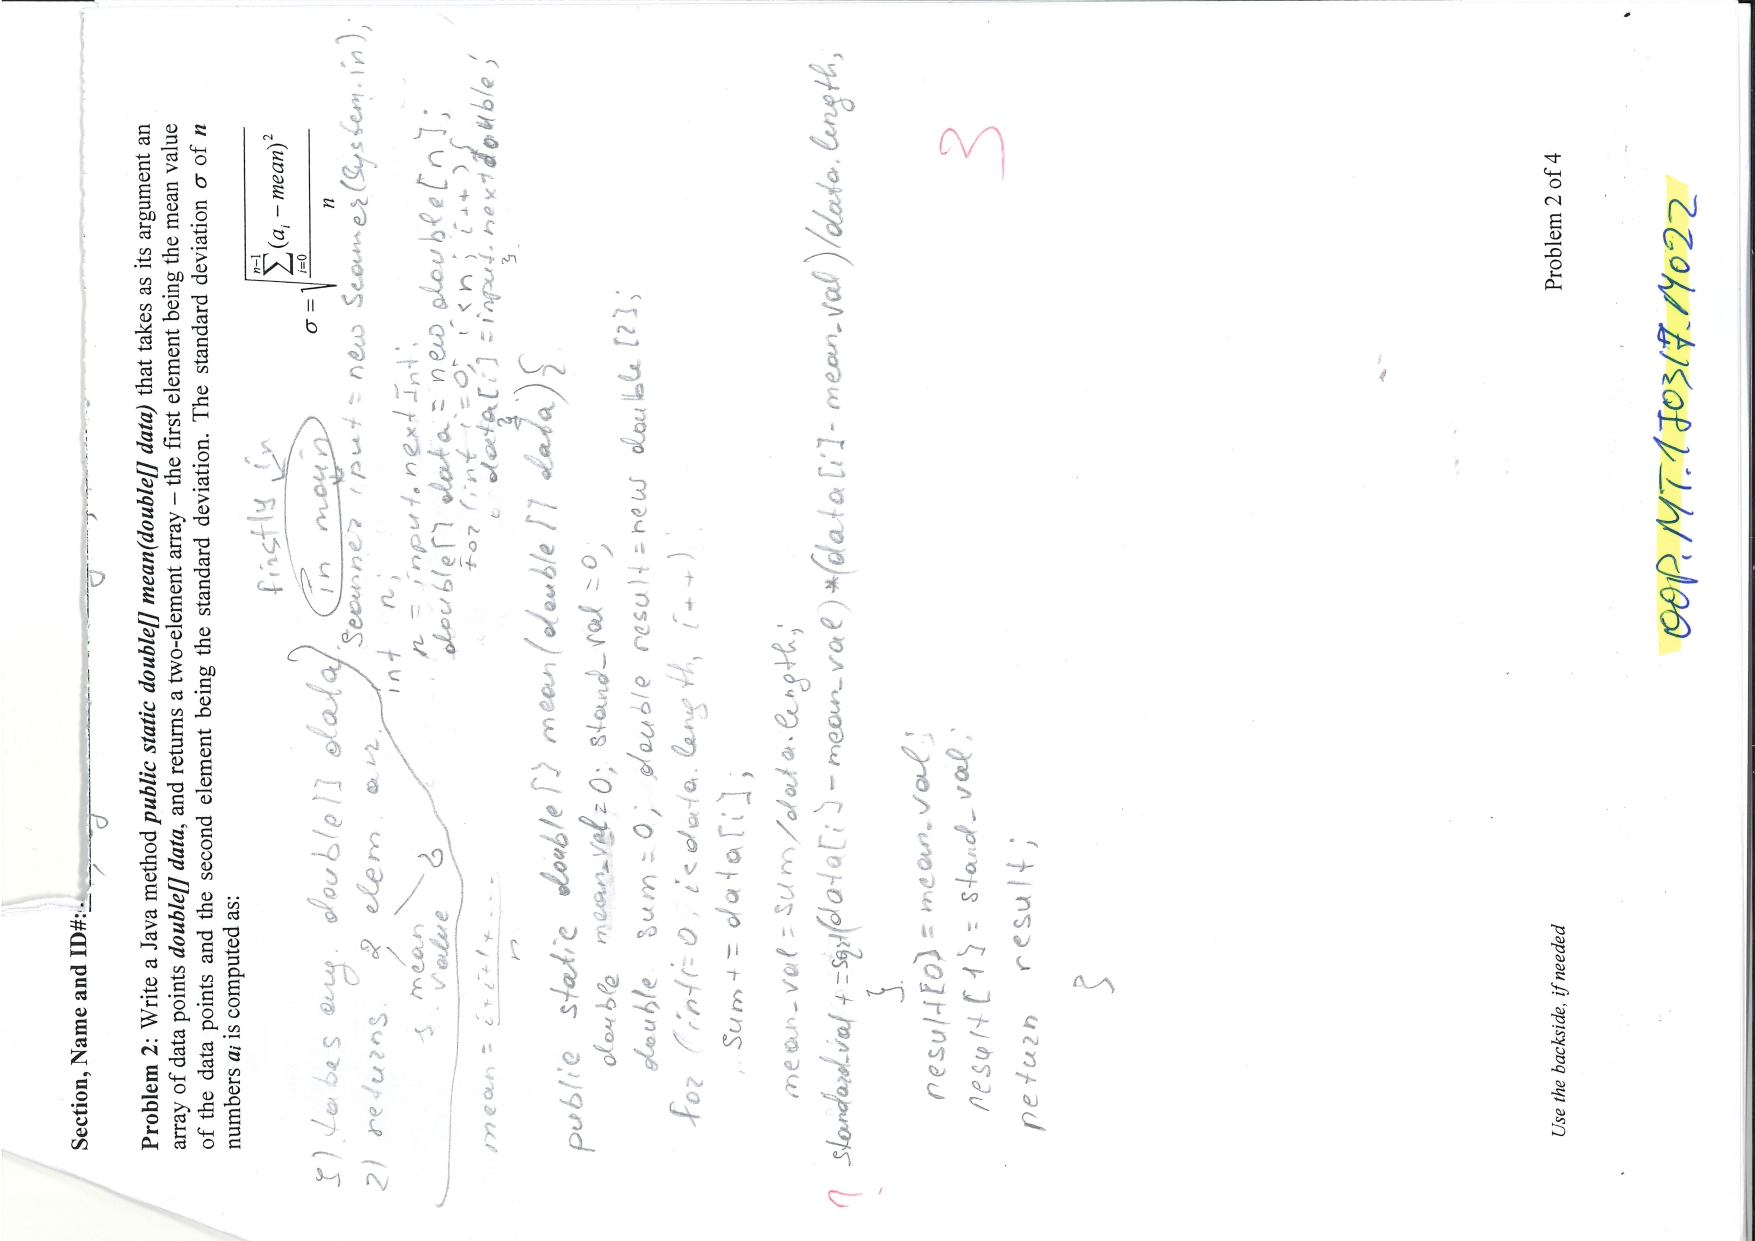 Section, Name and ID#:
Problem 2: Write a Java method public static double[] mean(double[] data) that takes as its argument an
array of data points double[] data, and returns a two-element array – the first element being the mean value
of the data points and the second element being the standard deviation. The standard deviation σ of n
numbers ai is computed as:
σ = √( n−1 ∑ i=0 (ai − mean)² / n )
firstly in
in main
1) takes any. double[] data
2) returns. 2 elem. arr.
1 mean value
2
mean = i+i+1+...
n
Scanner iput = new Scanner(System.in);
int n;
n = input.nextInt;
double[] data = new double[n];
for (int i=0; i<n; i++){
data[i] = input.nextdouble;
}
}
public static double[] mean(double[] data){
double mean_val=0; stand_val=0;
double sum=0; double result=new double[2];
for (int i=0, i<data.length, i++)
sum+=data[i];
mean_val=sum/data.length;
? standard_val +=sqrt(data[i]-mean_val)*(data[i]-mean_val)/data.length,
}
result[0]=mean_val;
result[1]=stand_val;
return result;
}
3
Use the backside, if needed
Problem 2 of 4
OOP.MT.170317.M022